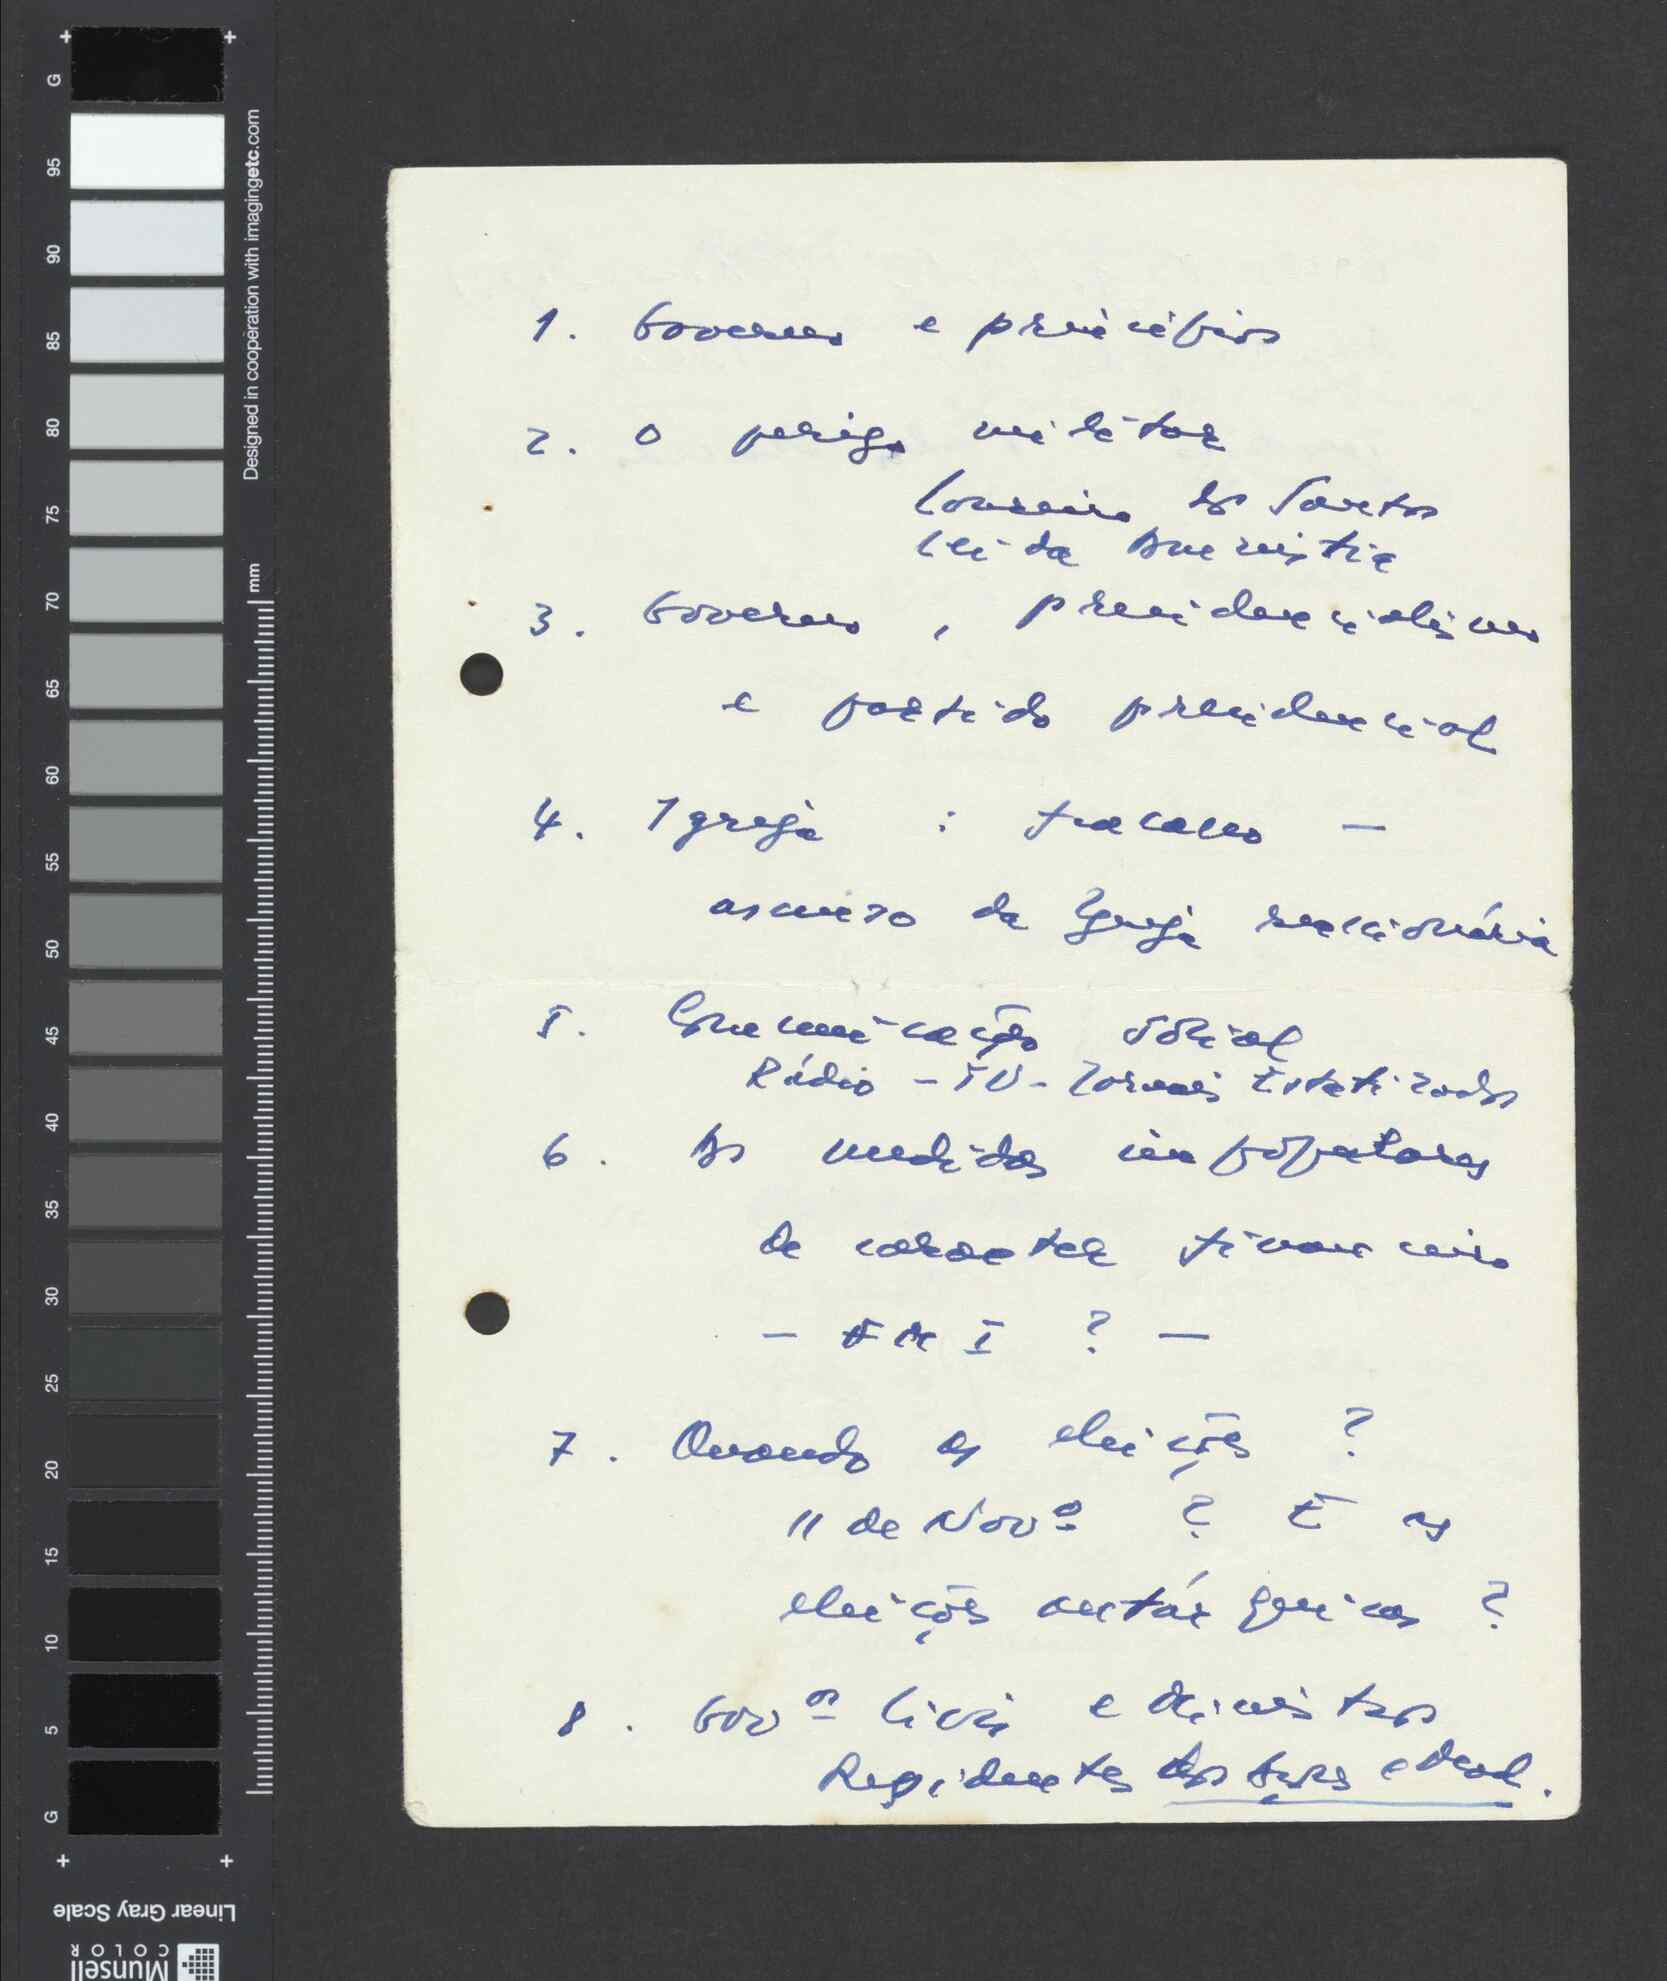 G
95
90
85
80
75
70
65
60
55
50
45
40
35
30
25
20
15
10
5
G
Designed in cooperation with imagingetc.com
mm
Linear Gray Scale
Munsell
COLOR
1. Governo e princípios
2. O perigo militar
Loureiro dos Santos
Lei da Amnistia
3. Governo, presidencialismo
e partido presidencial
4. Igreja : fracasso –
ascenso da Igreja reaccionária
5. Comunicação social
Rádio – TV – Jornais Estatizados
6. As medidas impopulares
de caracter financeiro
– FMI ? –
7. Quando as eleições ?
11 de Novº ? E as
eleições autárquicas ?
8. Govºs Civis e Ministros